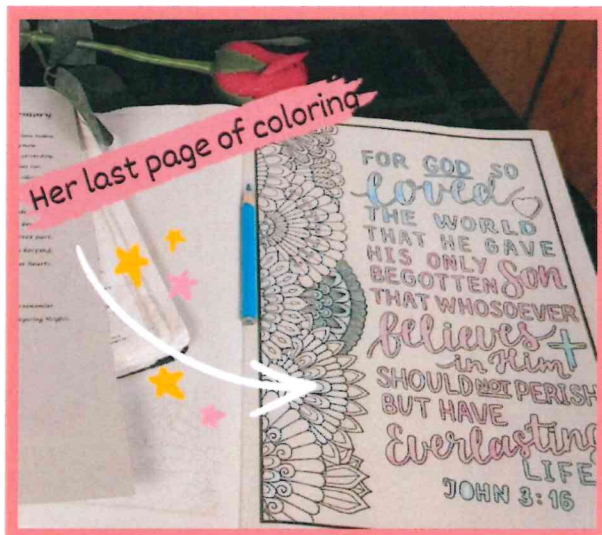 Her last page of coloring
FOR GOD SO
loved
THE WORLD
THAT HE GAVE
HIS ONLY Son
BEGOTTEN
THAT WHOSOEVER
believes
in Him
SHOULD NOT PERISH
BUT HAVE
Everlasting
LIFE
JOHN 3:16